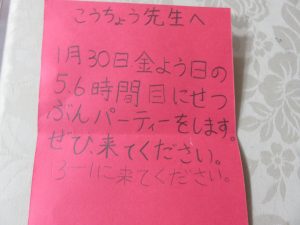 こうちょう先生へ
1月30日金よう日の
5.6時間目にせつ
ぶんパーティーをします。
ぜひ、来てください。
3-1に来てください。